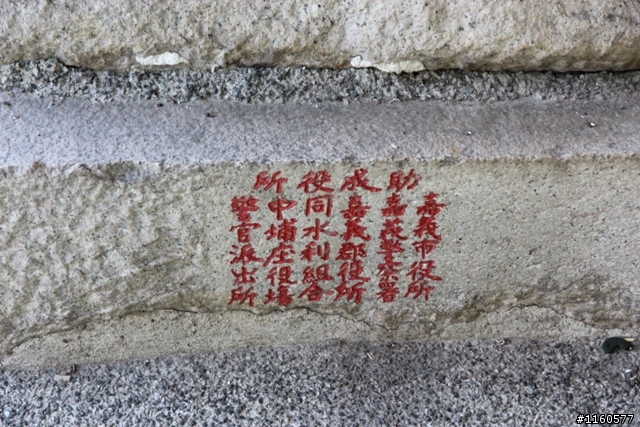 助成役所
嘉義市役所
嘉義警察署
嘉義郡役所
同水利組合
中埔庄役場
警官派出所
#1160577